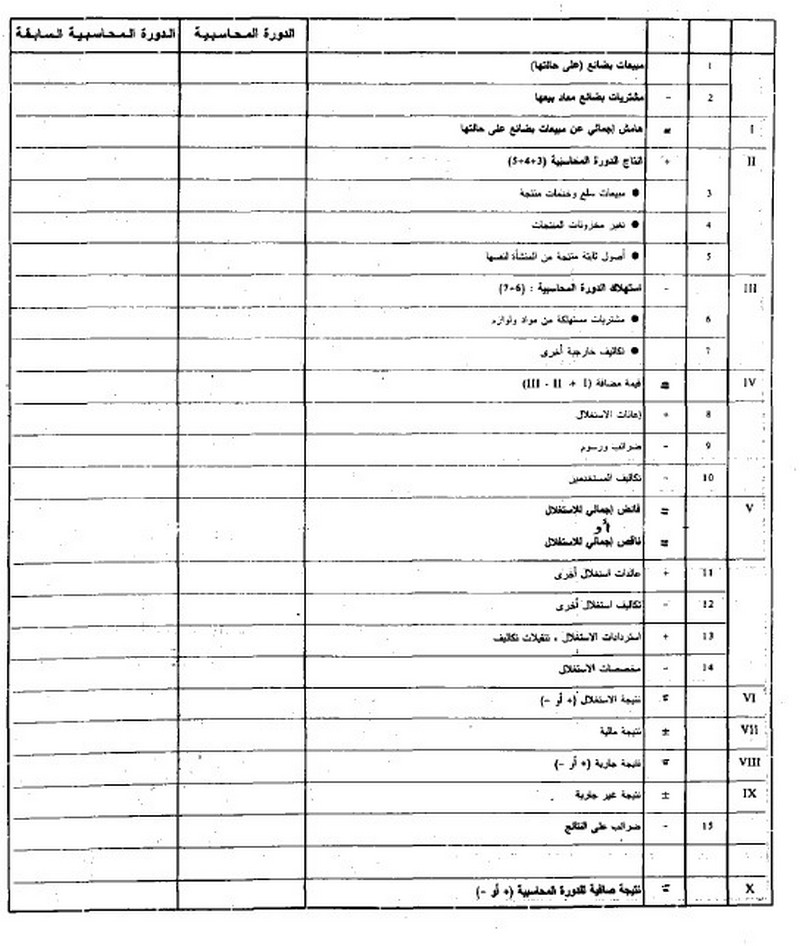 الدورة المحاسبية الدورة المحاسبية السابقة
1 مبيعات بضائع (على حالتها)
2 - مشتريات بضائع معاد بيعها
I = هامش إجمالي عن مبيعات بضائع على حالتها
II + انتاج الدورة المحاسبية (3+4+5)
3 ● مبيعات سلع وخدمات منتجة
4 ● تغير مخزونات المنتجات
5 ● أصول ثابتة منتجة من المنشأة لنفسها
III - استهلاك الدورة المحاسبية : (6+7)
6 ● مشتريات مستهلكة من مواد ولوازم
7 ● تكاليف خارجية أخرى
IV = قيمة مضافة (I + II - III)
8 + إعانات الاستغلال
9 - ضرائب ورسوم
10 - تكاليف المستخدمين
V = فائض إجمالي للاستغلال
أو
= ناقص إجمالي للاستغلال
11 + عائدات استغلال أخرى
12 - تكاليف استغلال أخرى
13 + استردادات الاستغلال ، تنقيلات تكاليف
14 - مخصصات الاستغلال
VI = نتيجة الاستغلال (+ أو -)
VII ± نتيجة مالية
VIII = نتيجة جارية (+ أو -)
IX ± نتيجة غير جارية
15 - ضرائب على النتائج
X = نتيجة صافية للدورة المحاسبية (+ أو -)